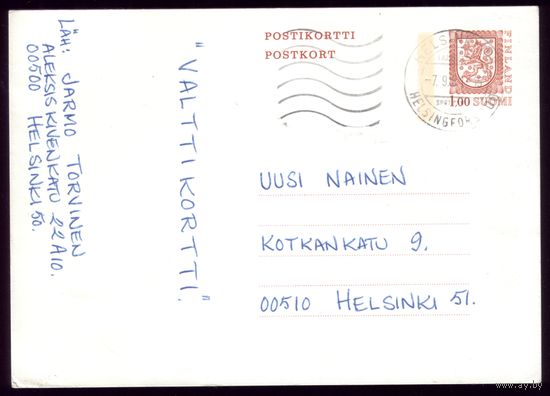 LÄH: JARMO TORVINEN
ALEKSIS KIVENKATU 22 A 10.
00500 HELSINKI 50.
"VALTTIKORTTI."
POSTIKORTTI
POSTKORT
FINLAND
1,00 SUOMI
HELSINGFORS
-7.9.
UUSI NAINEN
KOTKANKATU 9.
00510 HELSINKI 51.
© www.ay.by